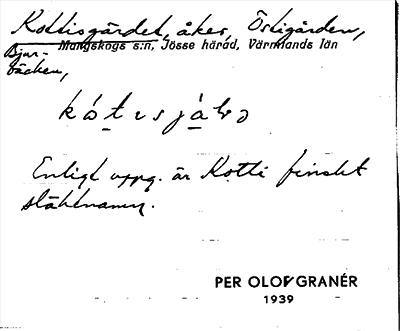 Kottisgärdet, åker, Östigården,
Mangskogs s:n, Jösse härad, Värmlands län
Bjur-
bäcken,
Enligt uppg. är Kotti finskt
släktnamn.
PER OLOV GRANÉR
1939